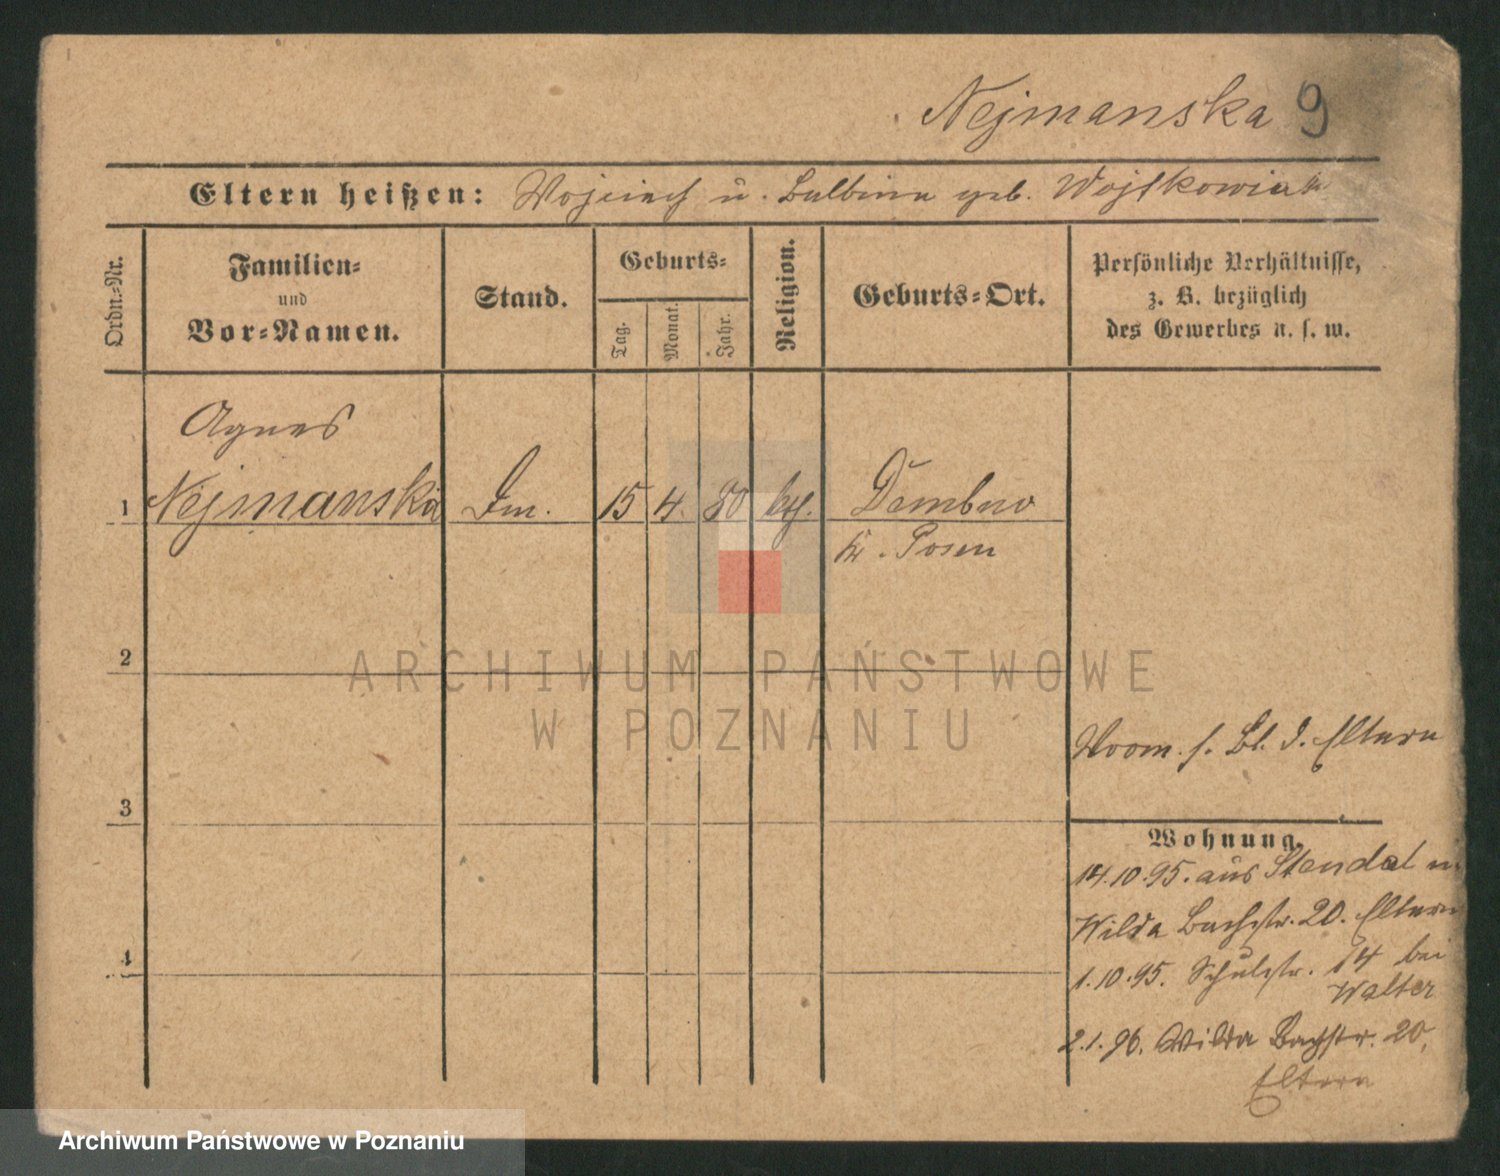 Nejmanska 9
Eltern heißen: Wojciech u. Balbina geb. Wojtkowiak
Ordn.-Nr.
Familien-
und
Vor-Namen.
Stand.
Geburts-
Tag.
Monat.
Jahr.
Religion.
Geburts-Ort.
Persönliche Verhältnisse,
z. B. bezüglich
des Gewerbes u. s. w.
Agnes
1 Nejmanska 15 4. 80 kth. Dembno
Kr. Posen
2
ARCHIWUM PAŃSTWOWE
W POZNANIU
s. Bl. d. Eltern
3
Wohnung.
14.10.95. aus Stendal n.
Wilda Bachstr. 20. Eltern
4
1.10.95. Schulstr. 14 bei
Walter
2.1.96. Wilda Bachstr. 20,
Eltern
Archiwum Państwowe w Poznaniu